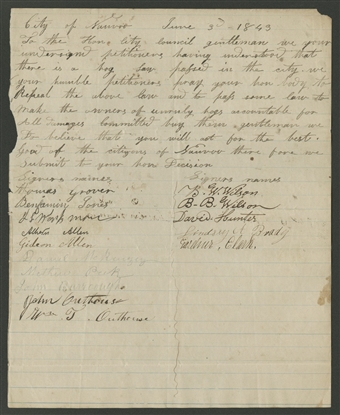 City of Nauvoo June 3d 1843
To the Hon. city Council gentleman we your
undersigned petitioners having understood that
there is a hog law passed in the city we
your humble Petitioners pray your hon body to
Repeal the above law and to pass some law to
make the owners of unruly hogs accountable for
all damages committed buy them gentleman we
do believe that you will act for the best
Good of the citizens of Nauvoo there fore we
submit to your hon Decision
Signers names Signers names
Thomas Grover B. W. Wilson
Benjamin Jones B-B. Wilson
David Hunter
Albern Allen
Gideon Allen Clark
Daniel
John Outhouse
Wm T. Outhouse